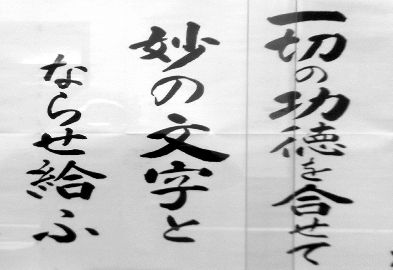 一切の功徳を合せて
妙の文字と
ならせ給ふ